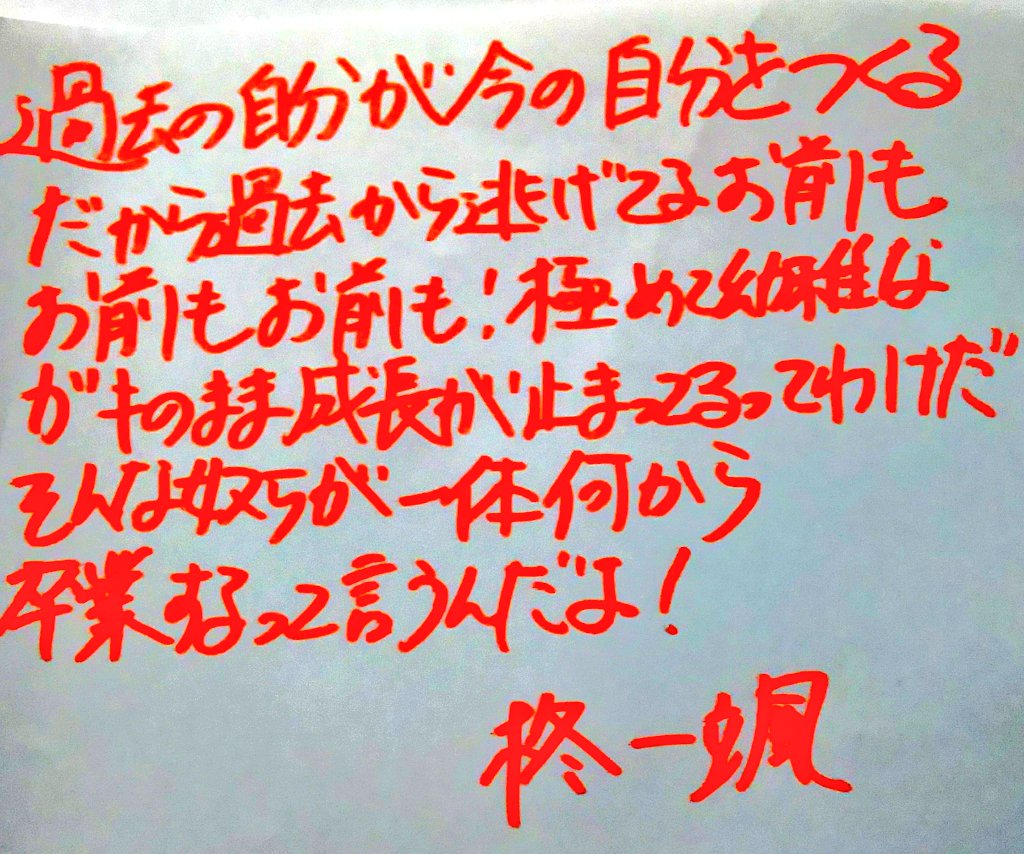 過去の自分が今の自分をつくる
だから過去から逃げてるお前も
お前もお前も!極めて幼稚な
ガキのまま成長が止まってるってわけだ
そんな奴らが一体何から
卒業するって言うんだよ!
柊一颯